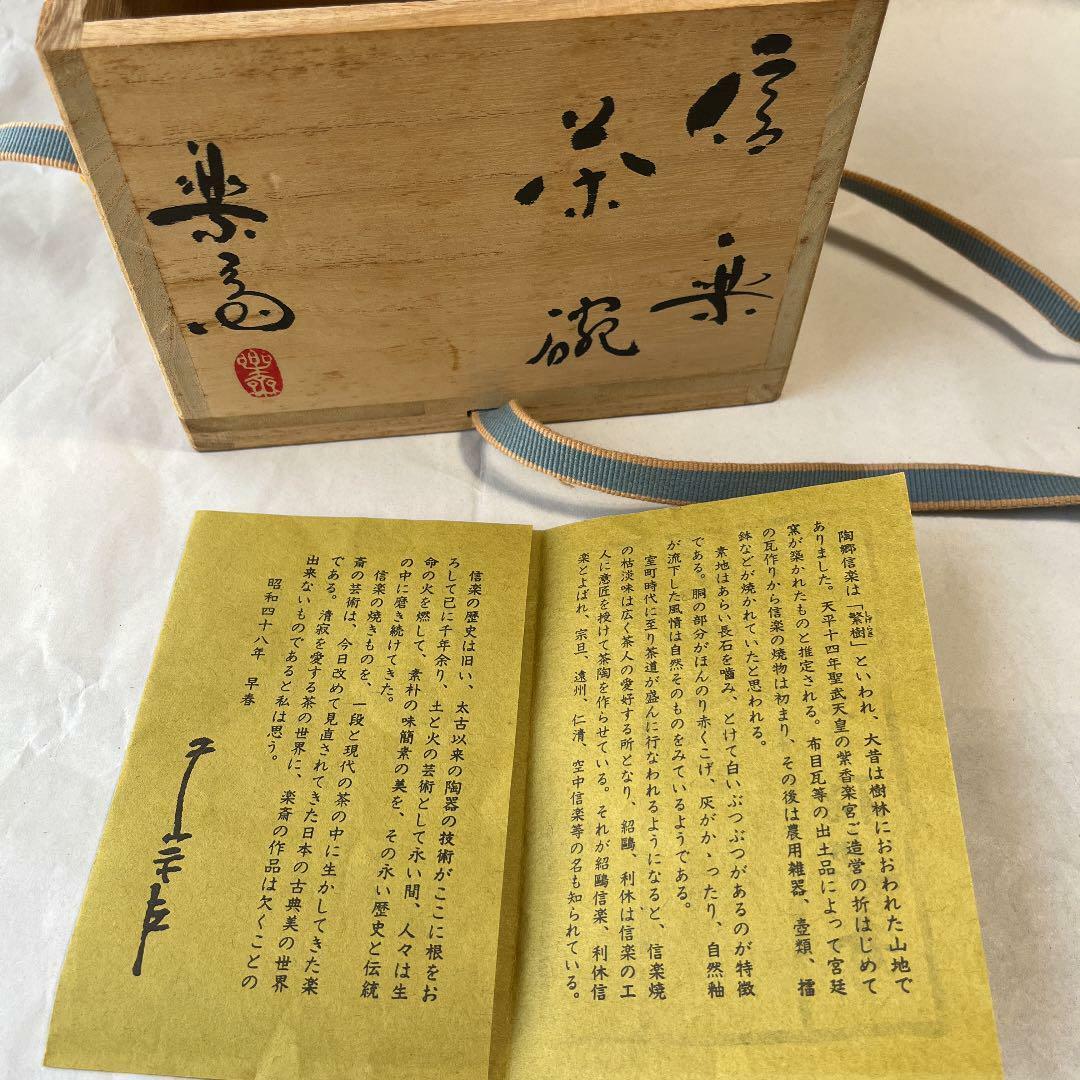 信楽
茶碗
楽斎
陶郷信楽は「繁樹」といわれ、大昔は樹林におおわれた山地で
ありました。天平十四年聖武天皇の紫香楽宮ご造営の折はじめて
窯が築かれたものと推定される。布目瓦等の出土品によって宮廷
の瓦作りから信楽の焼物は初まり、その後は農用雑器、壺類、擂
鉢などが焼かれていたと思われる。
素地はあらい長石を嚙み、とけて白いぶつぶつがあるのが特徴
である。胴の部分がほんのり赤くこげ、灰がかゝったり、自然釉
が流下した風情は自然そのものをみているようである。
室町時代に至り茶道が盛んに行なわれるようになると、信楽焼
の枯淡味は広く茶人の愛好する所となり、紹鷗、利休は信楽の工
人に意匠を授けて茶陶を作らせている。それが紹鷗信楽、利休信
楽とよばれ、宗旦、遠州、仁清、空中信楽等の名も知られている。
信楽の歴史は旧い、太古以来の陶器の技術がここに根をお
ろして已に千年余り、土と火の芸術として永い間、人々は生
命の火を燃して、素朴の味簡素の美を、その永い歴史と伝統
の中に磨き続けてきた。
信楽の焼きものを、一段と現代の茶の中に生かしてきた楽
斎の芸術は、今日改めて見直されてきた日本の古典美の世界
である。清寂を愛する茶の世界に、楽斎の作品は欠くことの
出来ないものであると私は思う。
昭和四十八年　早春